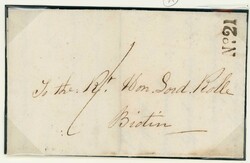 No 21
To the Rt. Hon Lord Rolle
Bicton